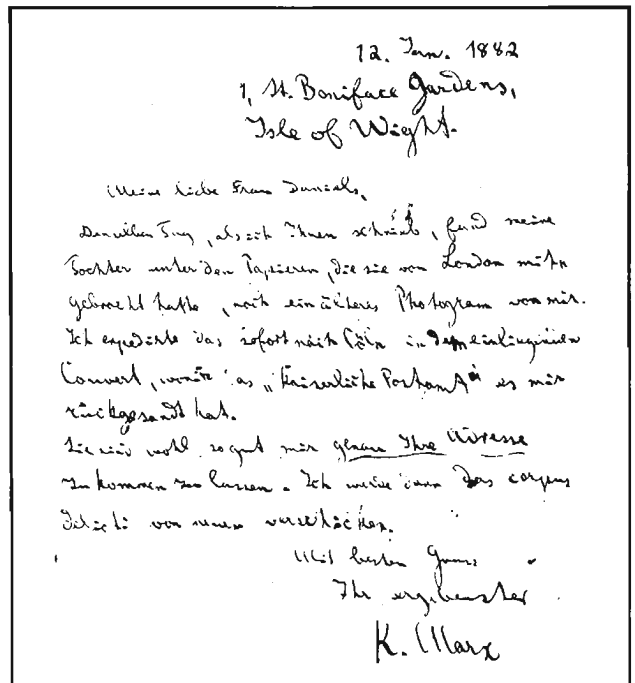 12. Jan. 1882
1, St. Boniface Gardens,
Isle of Wight.
Meine liebe Frau Daniels,
Denselben Tag, als ich Ihnen schrieb, fand meine
Tochter unter den Papieren, die sie von London mit
gebracht hatte, noch ein älteres Photogram von mir.
Ich expedirte das sofort nach Cöln in dem einliegenden
Couvert, worin das „Kaiserliche Postamt" es mir
rückgesandt hat.
Sie sind wohl so gut mir genau Ihre Adresse
zukommen zu lassen. Ich werde dann das corpus
delicti von neuem verschicken.
Mit besten Gruss
Ihr ergebenster
K. Marx